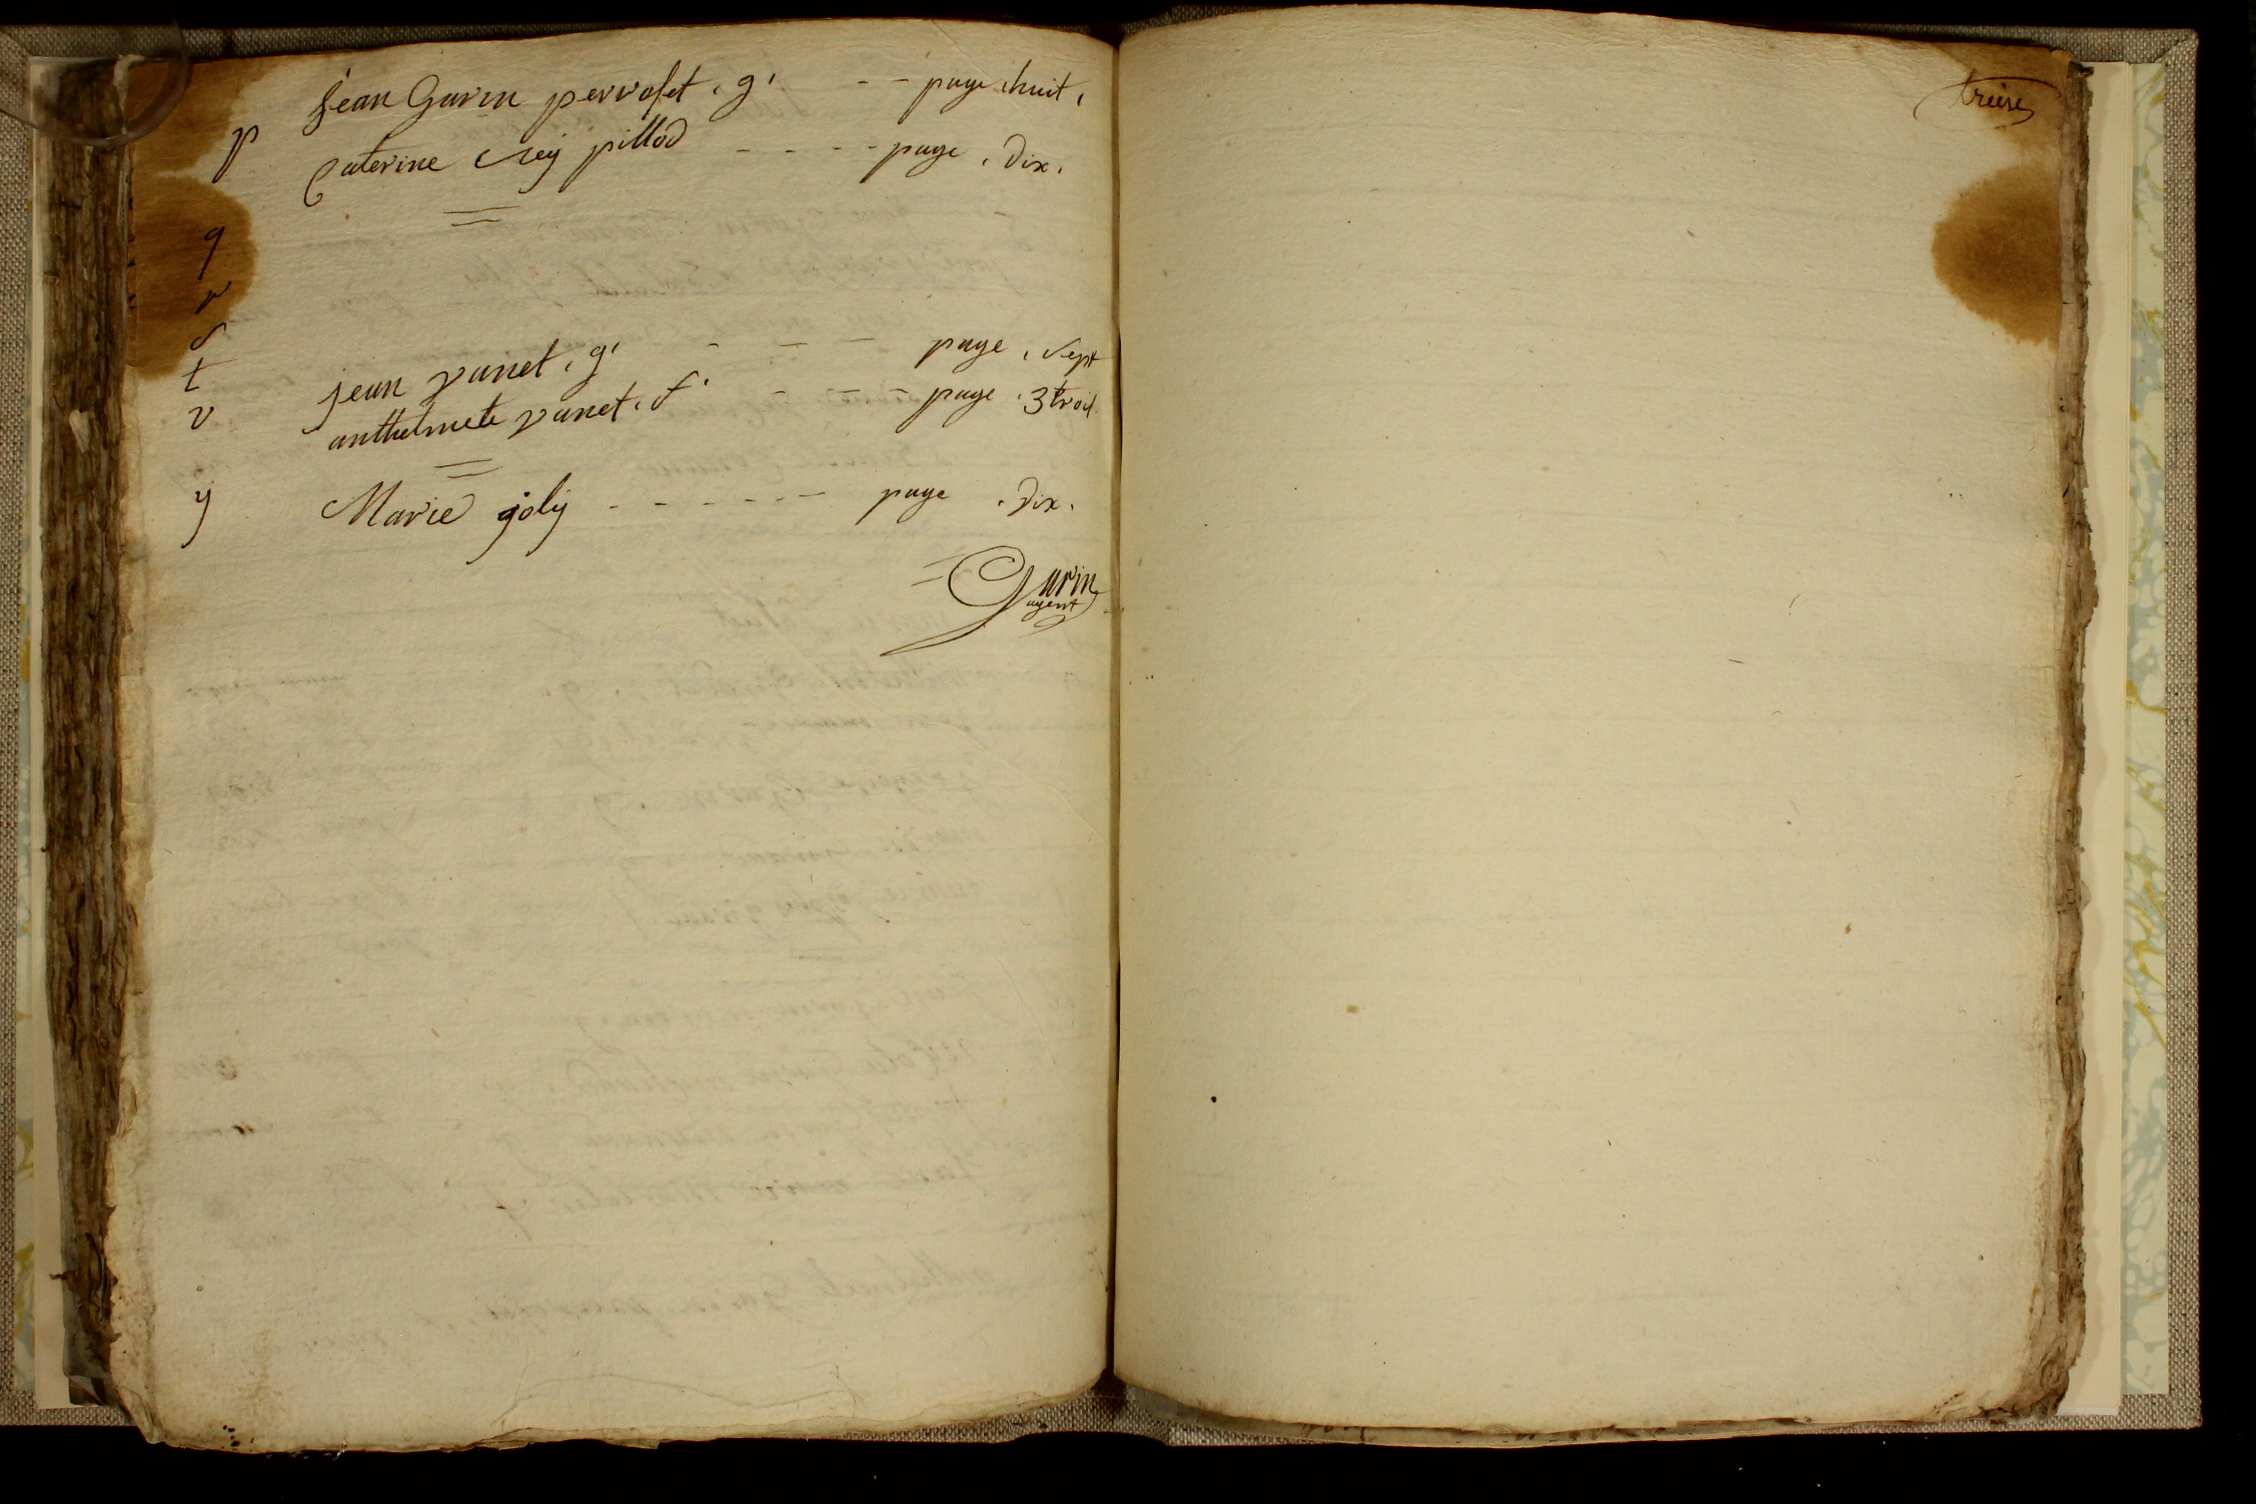 jean Garin perrolet, g, - - page huit,
p Caterine Rey pillod - - - - page, dix,
q
r
s
t
jean vanet, g, - - - page, sept
v anthelmete vanet, f, - - - page, 3 trois
y Marie joly - - - - - page, dix,
Garin
agent
treize